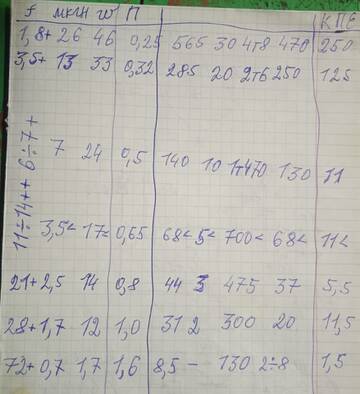 f мкГн W П КПЕ
1,8+ 26 46 0,25 565 30 4т8 470 250
3,5+ 13 33 0,32 285 20 2т6 250 125
6÷7+ 7 24 0,5 140 10 1т470 130 11
11÷14++ 3,5< 17< 0,65 68< 5< 700< 68< 11<
21+ 2,5 14 0,8 44 3 475 37 5,5
28+ 1,7 12 1,0 31 2 300 20 11,5
72+ 0,7 1,7 1,6 8,5 — 130 2÷8 1,5